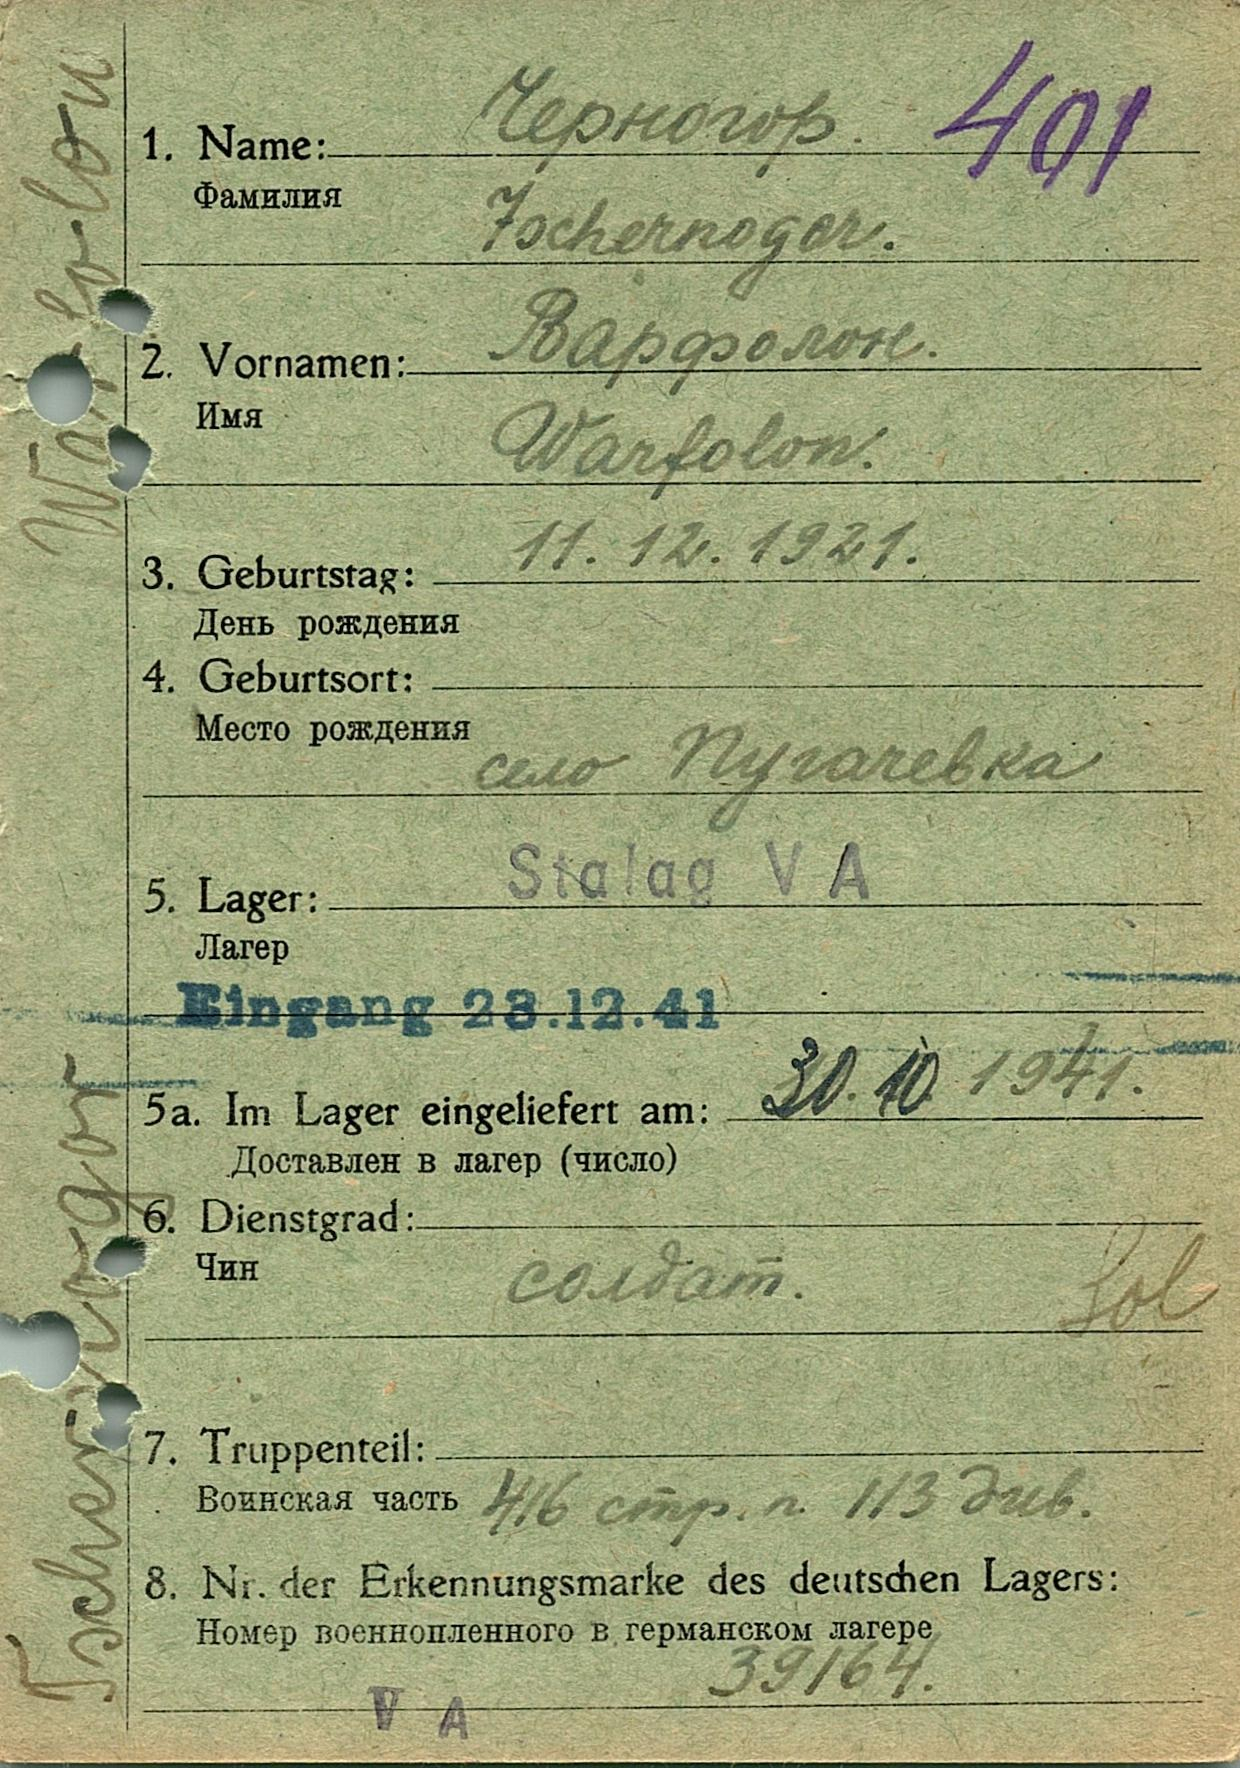 401
1. Name: Черногор.
Фамилия
Tschernogor.
2. Vornamen: Варфолон.
Имя
Warfolon.
3. Geburtstag: 11. 12. 1921.
День рождения
4. Geburtsort:
Место рождения
село Пугачевка
5. Lager: Stalag V A
Лагер
Eingang 23.12.41
5a. Im Lager eingeliefert am: 30. 10 1941.
Доставлен в лагер (число)
6. Dienstgrad:
Чин солдат.
Sol
7. Truppenteil:
Воинская часть 416 стр. п. 113 див.
8. Nr. der Erkennungsmarke des deutschen Lagers:
Номер военнопленного в германском лагере
39164.
V A
Tschernogor Warfolon